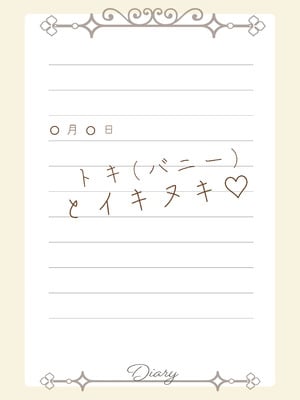 〇月〇日
トキ(バニー)
とイキヌキ♡
Diary